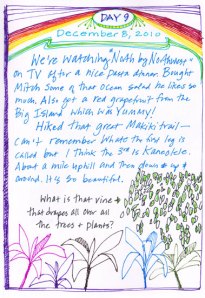 DAY 9
DECEMBER 8, 2010
We're watching "North by Northwest"
on TV after a nice pasta dinner. Bought
Mitch some of that ocean salad he likes so
much. Also got a red grapefruit from the
Big Island which was yummy!
Hiked that great Makiki trail—
can't remember whats the first leg is
called but I think the 3rd is Kaneolole.
About a mile uphill and then down & up &
around. It's so beautiful.
What is that vine
that drapes all over all
the trees + plants?